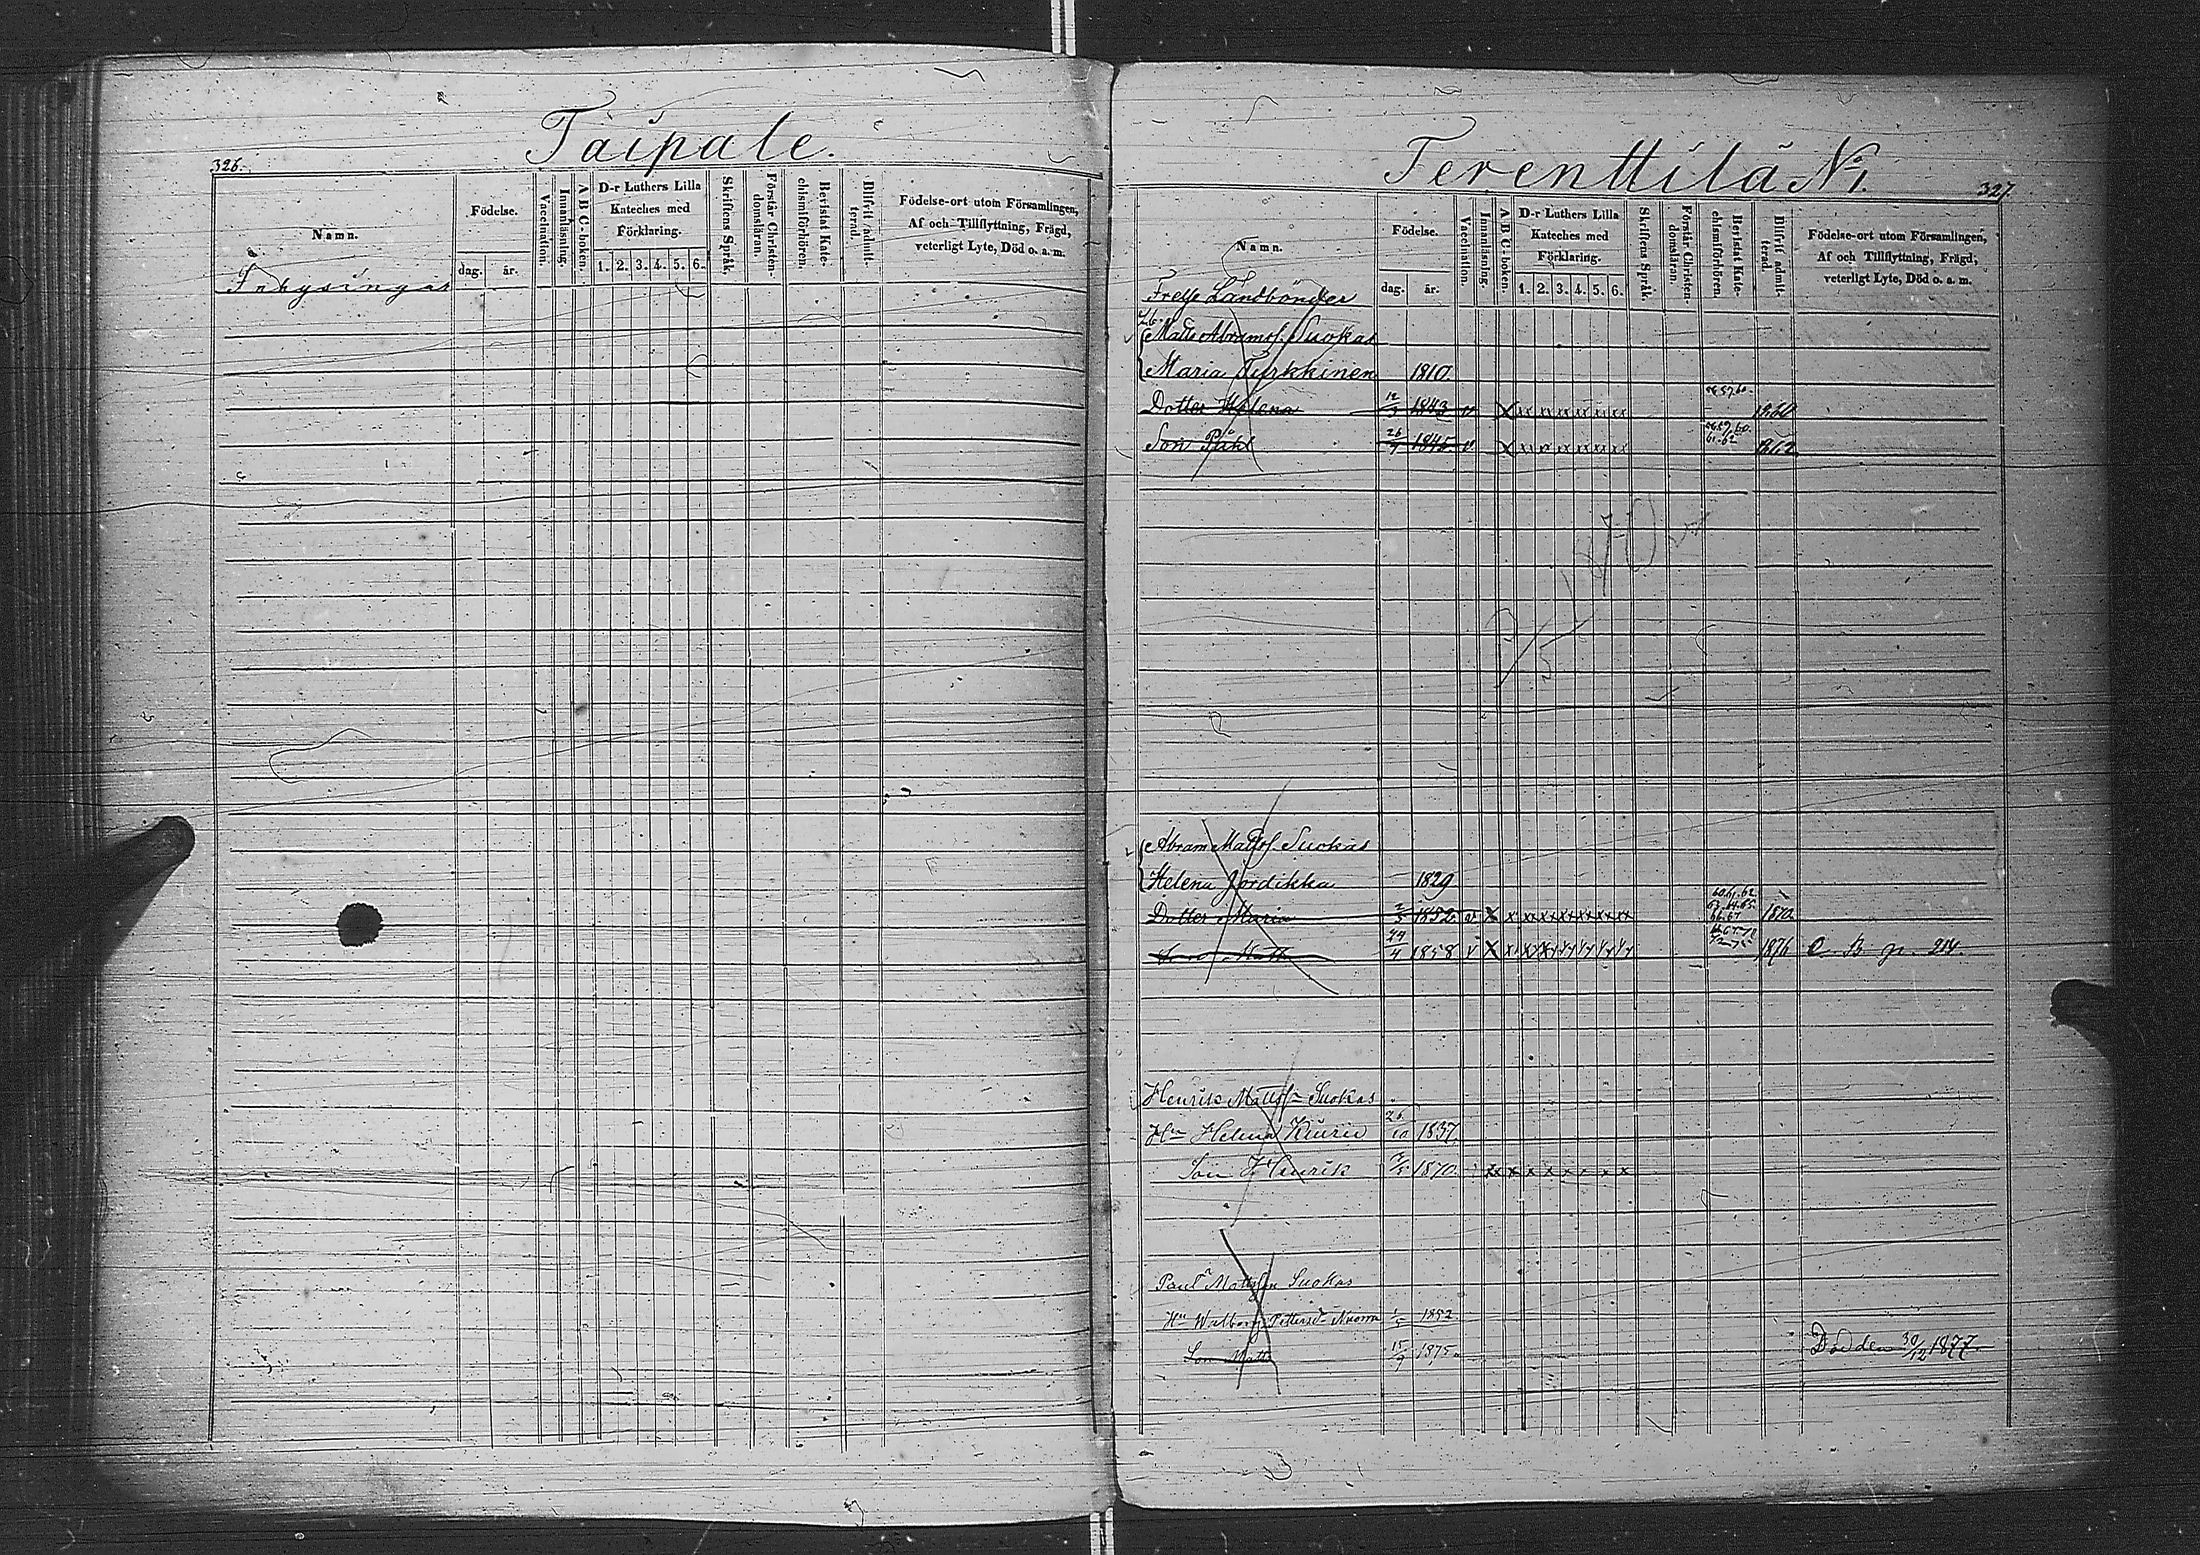 326.
Taipale.
Namn.
Födelse.
dag.
år.
Vaccination.
Innanläsning.
A B C-boken.
D-r Luthers Lilla
Kateches med
Förklaring.
1. 2. 3. 4. 5. 6.
Skriftens Språk.
Förstår Christen-
domsläran.
Bevistat Kate-
chismiförhören.
Blifvit admit-
terad.
Födelse-ort utom Församlingen,
Af och Tillflyttning, Frägd,
veterligt Lyte, Död o. a. m.
Inhysingar
Terenttilä No 1.
327
Namn.
Födelse.
dag.
år.
Vaccination.
Innanläsning.
A B C-boken.
D-r Luthers Lilla
Kateches med
Förklaring.
1. 2. 3. 4. 5. 6.
Skriftens Språk.
Förstår Christen-
domsläran.
Bevistat Kate-
chismiförhören.
Blifvit admit-
terad.
Födelse-ort utom Församlingen,
Af och Tillflyttning, Frägd,
veterligt Lyte, Död o. a. m.
Landbönder
Matts Abramss. Suokas
Maria Turkkinen 1810.
Dotter Helena 12/3 1843 v x 1860
Son Påhl 26/9 1845 v x 1862
Abram Mattss Suokas
Helena 1829
Dotter Maria 2/3 1852 v x 60.61.62. 63.64.65. 66.67 1870
Matts 29/4 1858 v x 1876 C. B. p. 214.
Henrik Mattss Suokas
Hu Helena Kiuru 26/10 1837.
Son Henrik 1870
Paul Mattsson Suokas
Hu Walborg Pettersd 1852.
Son Matts 15/9 1875
Död den 30/12 1877.